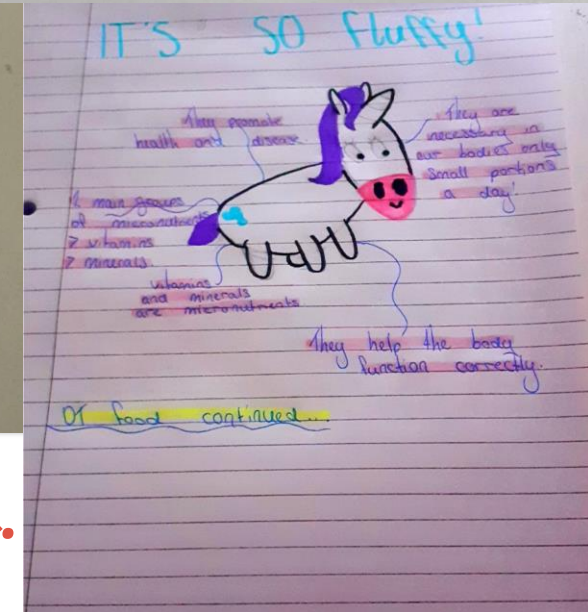 IT'S SO fluffy!
They promote
health and disease.
They are
necessary in
our bodies only
small portions
a day!
2 main groups
of micronutrients
> vitamins
> minerals.
vitamins
and minerals
are micronutrients
They help the body
function correctly.
DT food continued...